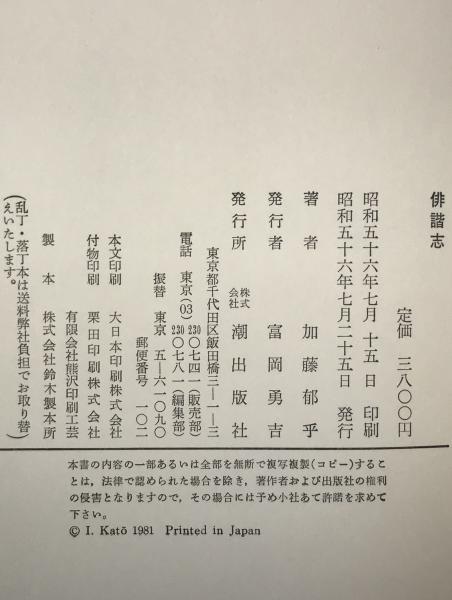 俳諧志
定価 三八〇〇円
昭和五十六年七月 十五日 印刷
昭和五十六年七月二十五日 発行
著者 加藤郁乎
発行者 富岡勇吉
発行所 株式会社 潮出版社
東京都千代田区飯田橋三―一―三
電話 東京(03) 230〇七四一(販売部)
230〇七八一(編集部)
振替 東京 五―六一〇九〇
郵便番号 一〇二
本文印刷 大日本印刷株式会社
付物印刷 栗田印刷株式会社
有限会社熊沢印刷工芸
製本 株式会社鈴木製本所
(乱丁・落丁本は送料弊社負担でお取り替
えいたします。)
本書の内容の一部あるいは全部を無断で複写複製(コピー)するこ
とは,法律で認められた場合を除き,著作者および出版社の権利
の侵害となりますので,その場合には予め小社あて許諾を求めて
下さい。
© I. Katō 1981 Printed in Japan